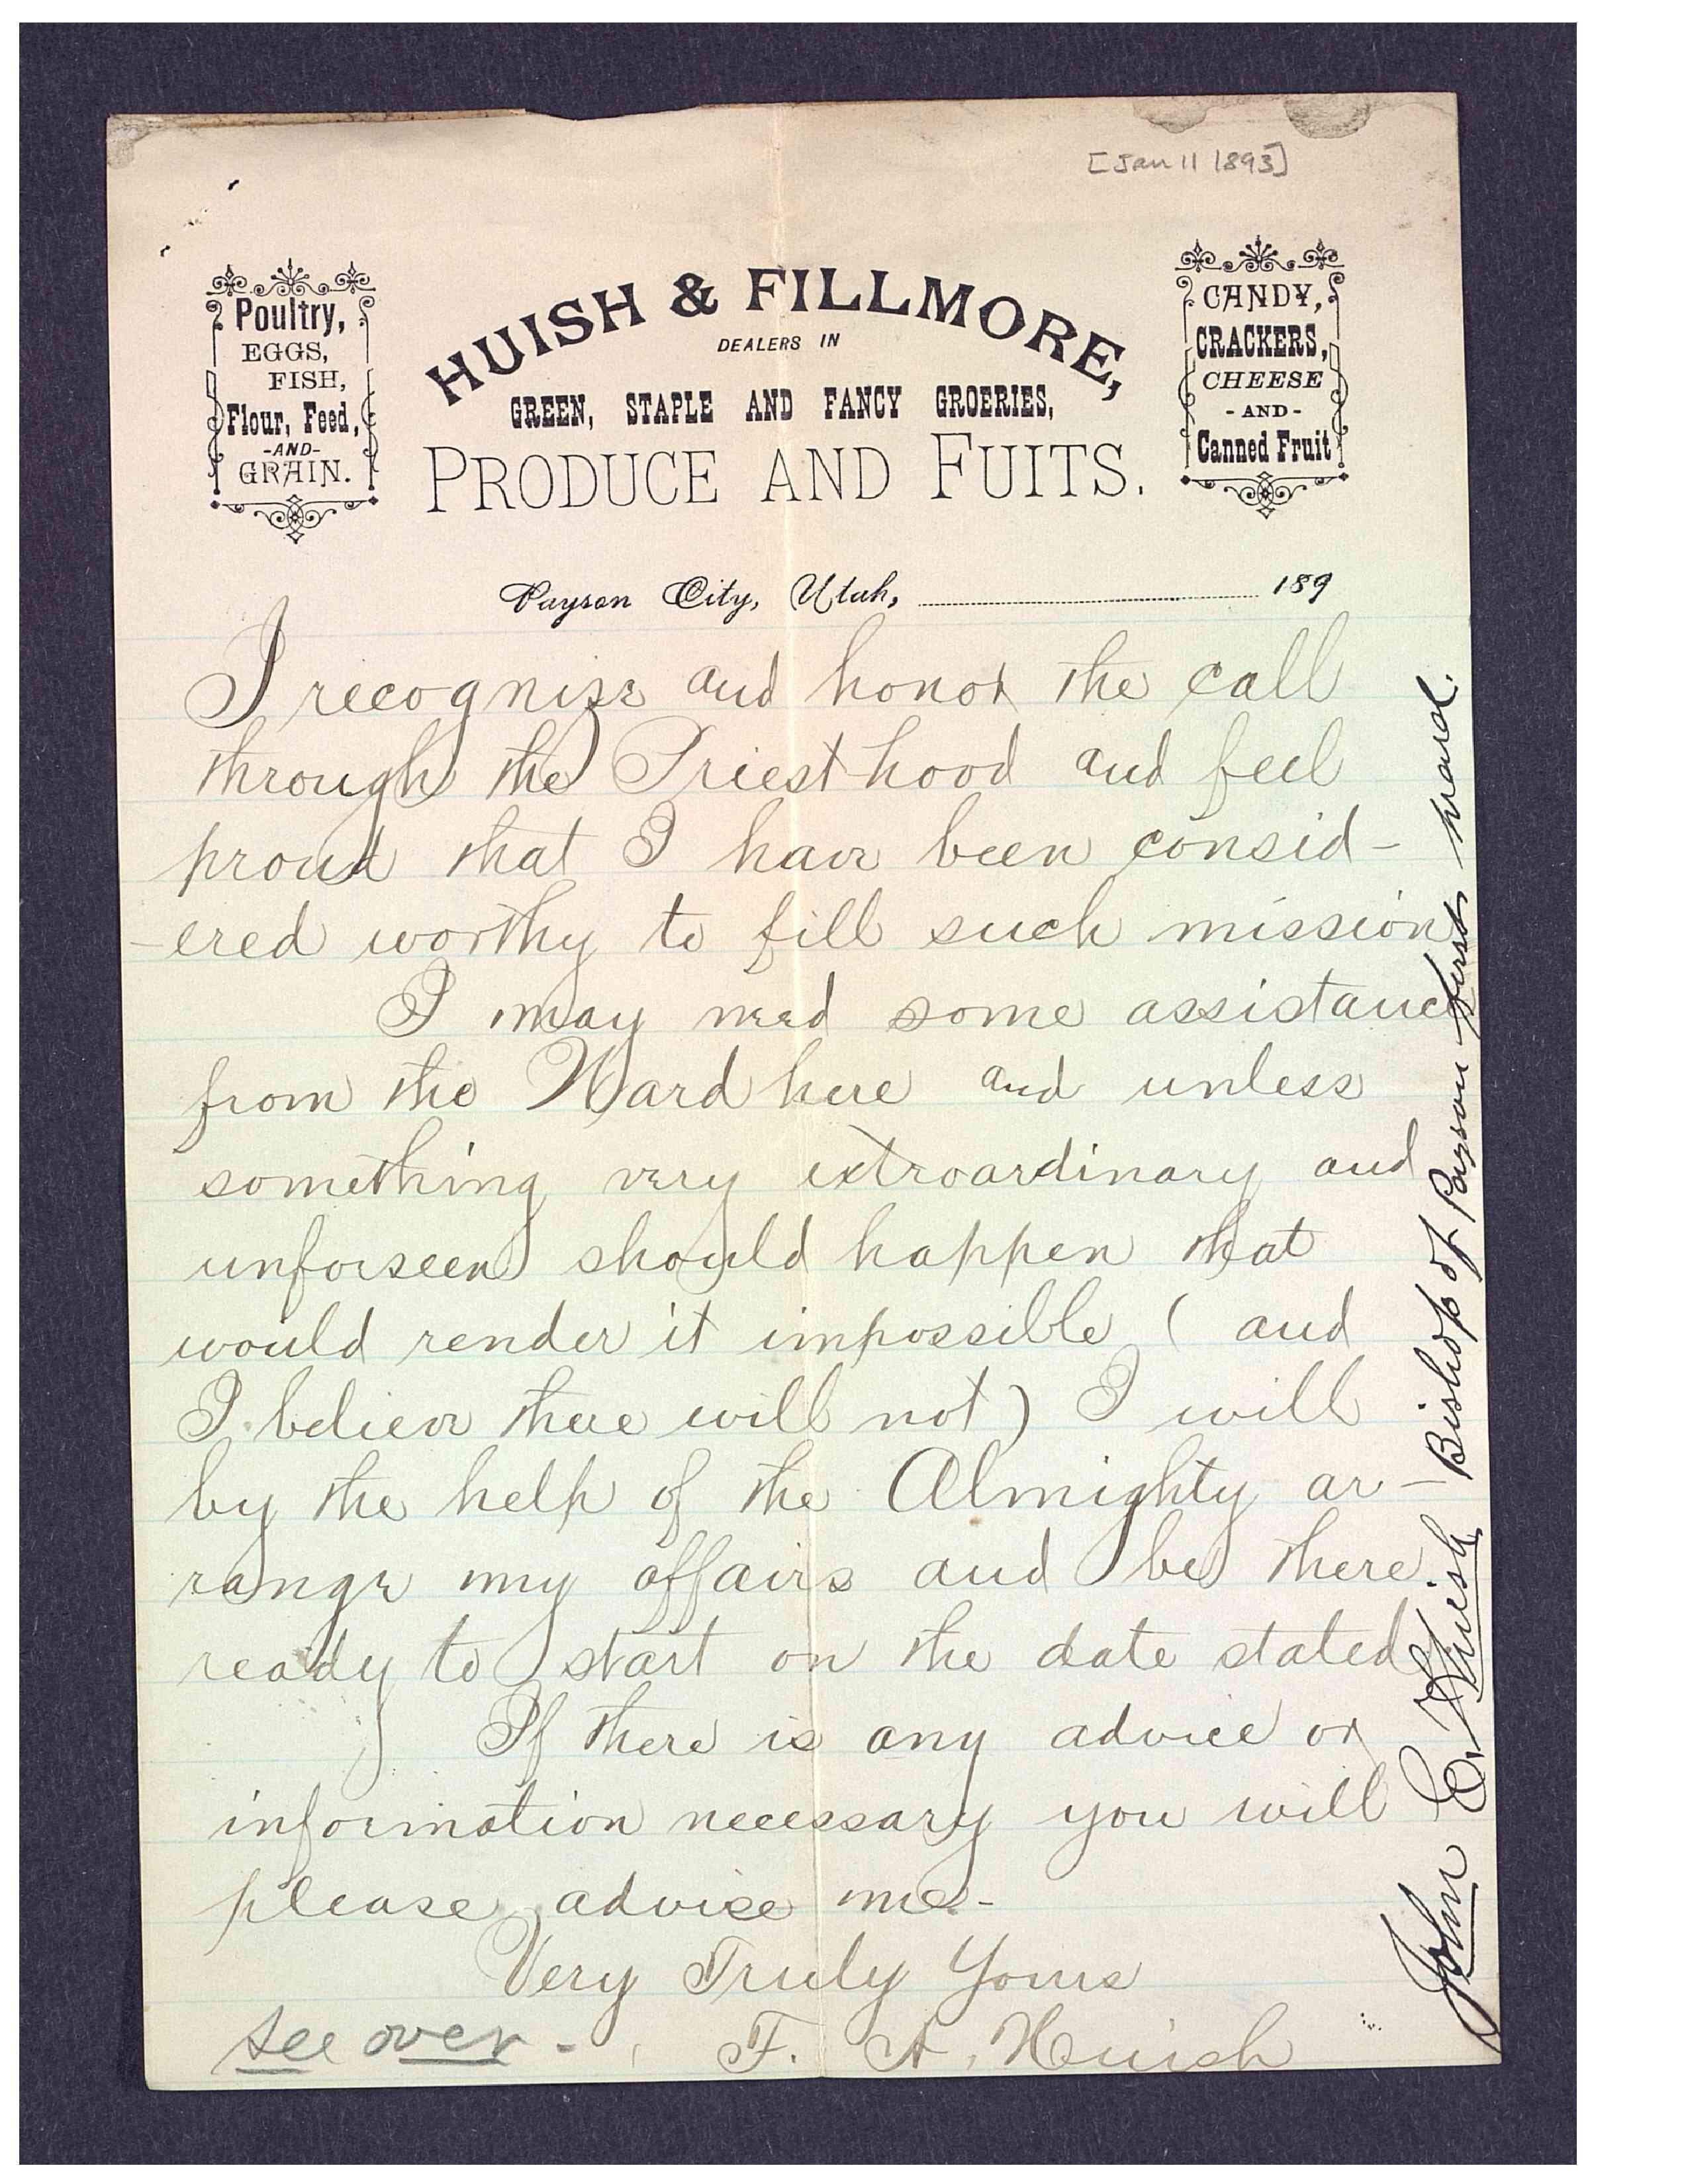 [Jan 11 1893]
Poultry,
EGGS,
FISH,
Flour, Feed,
-AND-
GRAIN.
HUISH & FILLMORE,
DEALERS IN
GREEN, STAPLE AND FANCY GROERIES,
PRODUCE AND FUITS.
CANDY,
CRACKERS,
CHEESE
- AND -
Canned Fruit
Payson City, Utah, 189
I recognize and honor the call
through the Priesthood and feel
proud that I have been consid-
-ered worthy to fill such mission
I may need some assistance
from the Ward here and unless
something very extroardinary and
unforseen should happen that
would render it impossible (and
I believe there will not) I will
by the help of the Almighty ar-
range my affairs and be there
ready to start on the date stated
If there is any advice or
information necessary you will
please advise me-
Very Truly Yours
F. A. Huish
see over -
John E. Huish Bishop of Payson first ward.